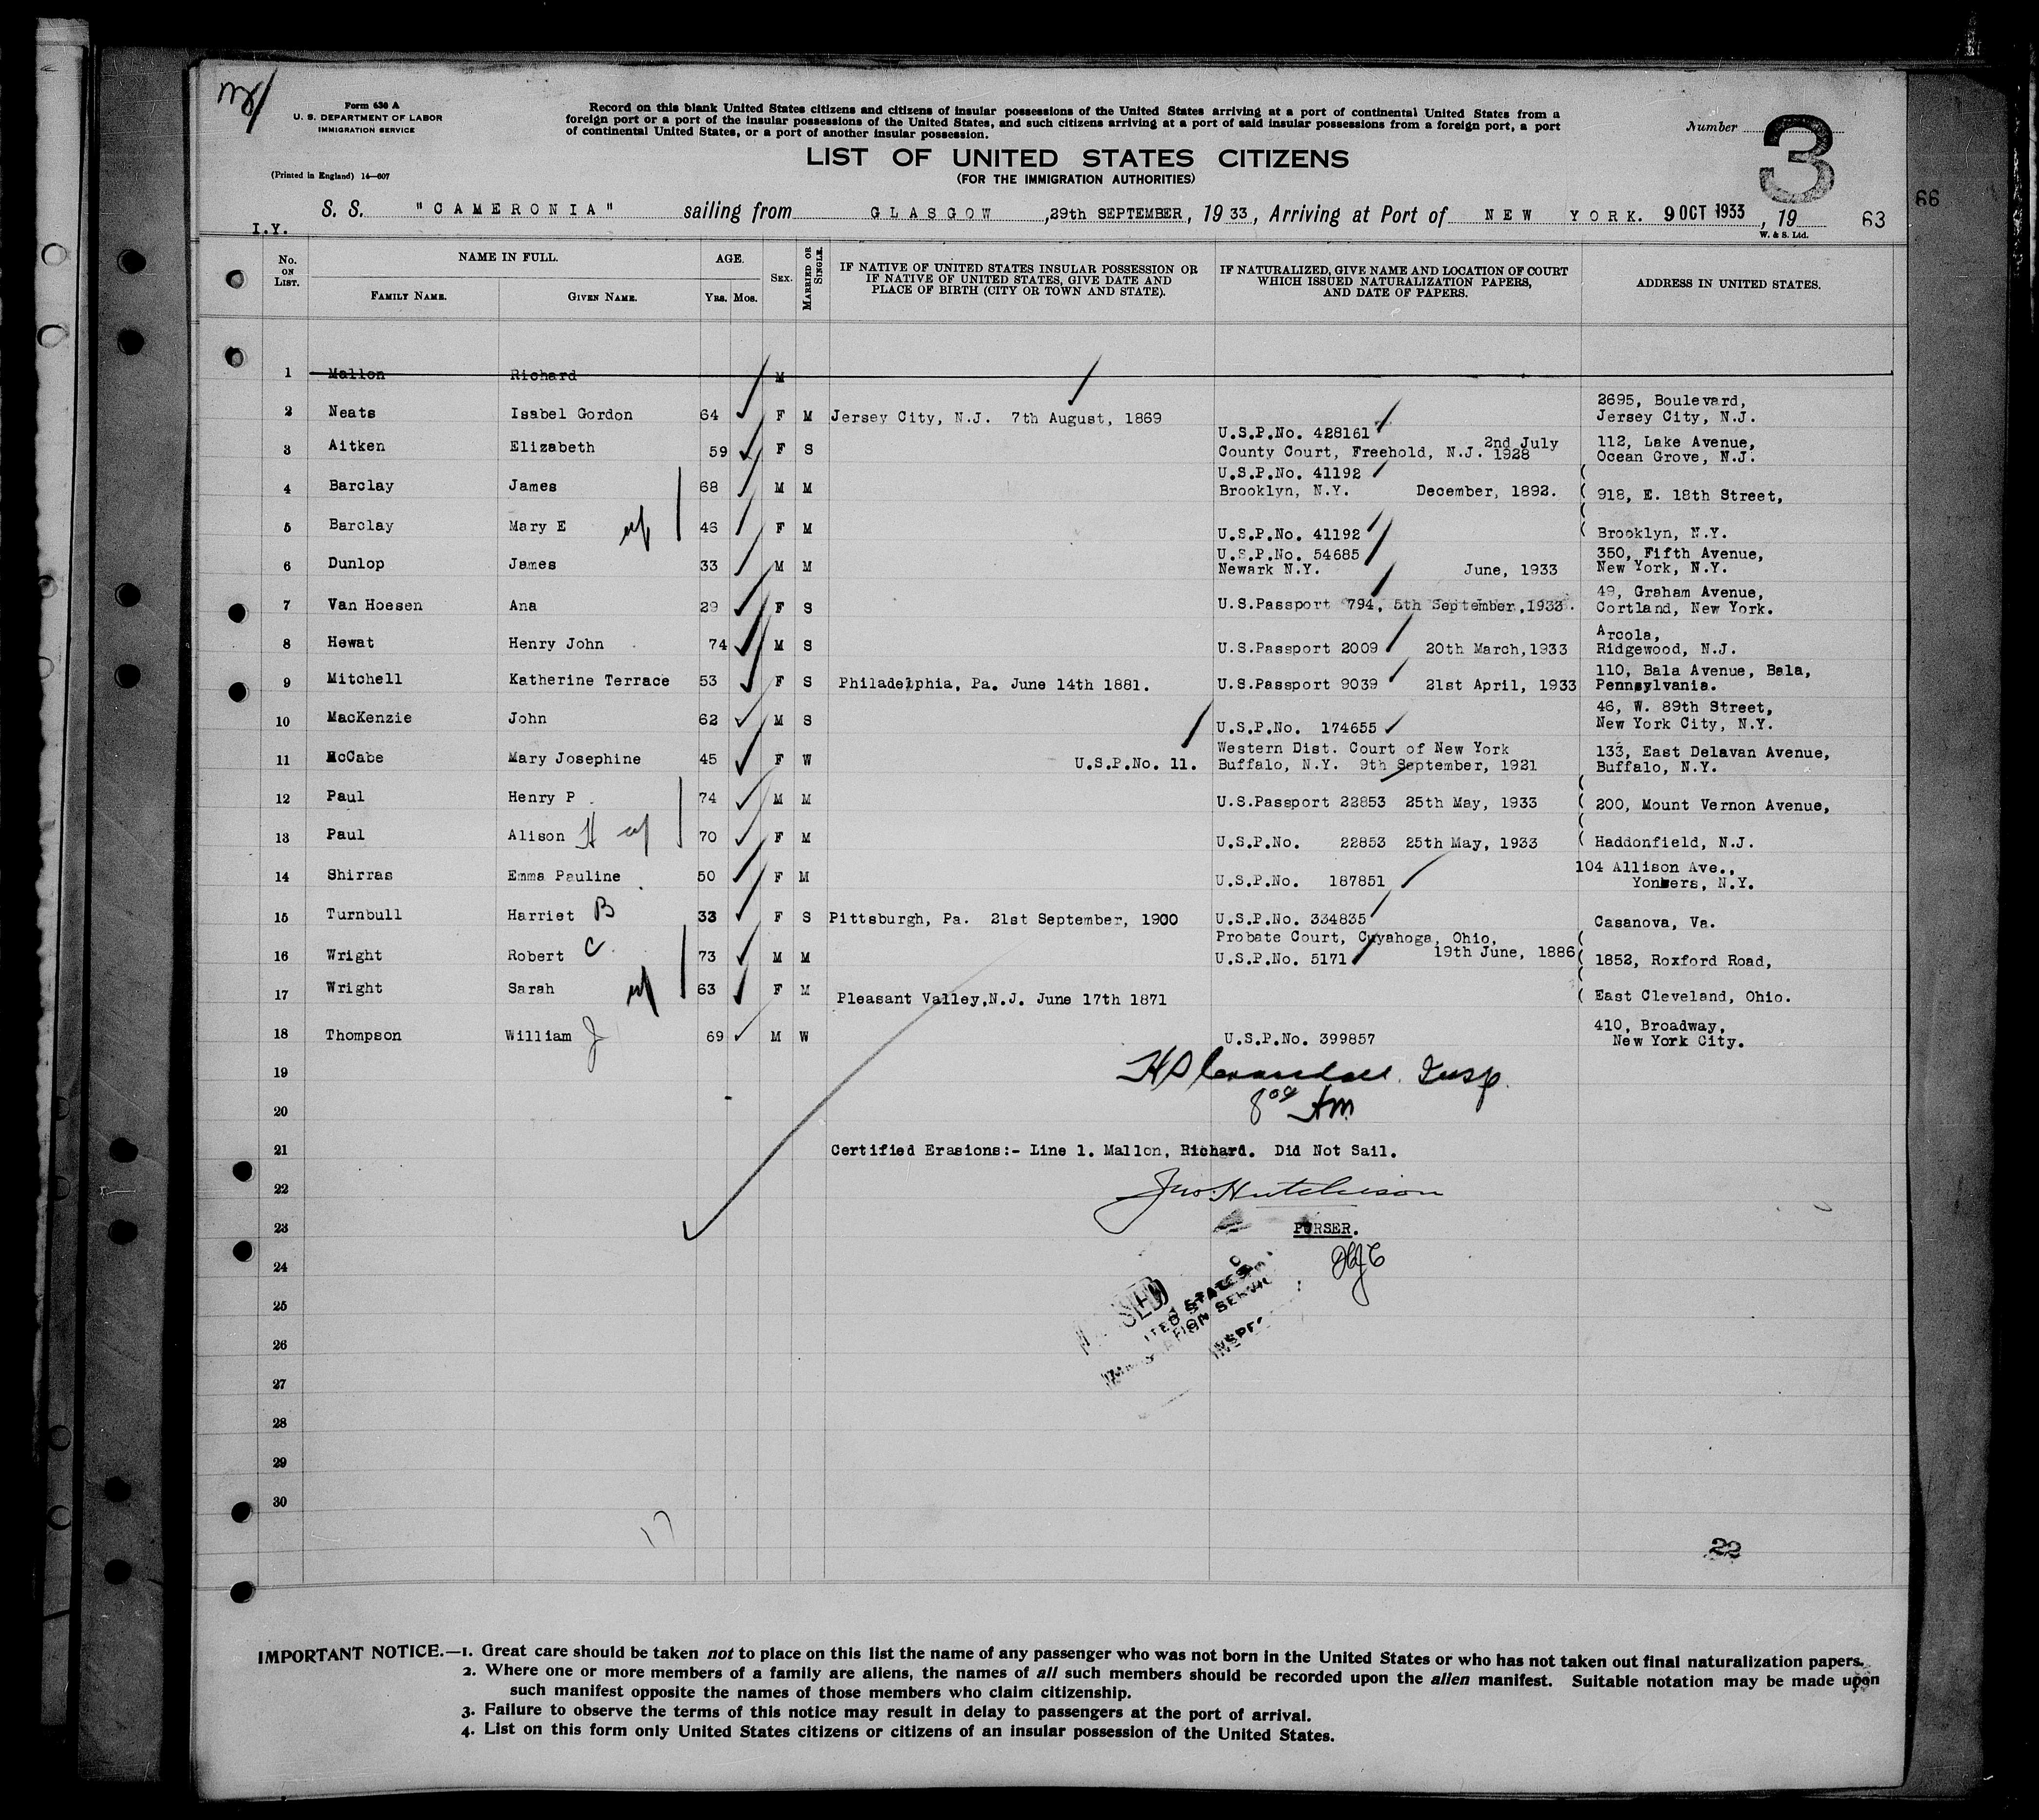 Form 630 A
U. S. DEPARTMENT OF LABOR
IMMIGRATION SERVICE
(Printed in England) 14—607
Record on this blank United States citizens and citizens of insular possessions of the United States arriving at a port of continental United States from a
foreign port or a port of the insular possessions of the United States, and such citizens arriving at a port of said insular possessions from a foreign port, a port
of continental United States, or a port of another insular possession.
Number 3
LIST OF UNITED STATES CITIZENS
(FOR THE IMMIGRATION AUTHORITIES)
S. S. "CAMERONIA" sailing from GLASGOW, 29th SEPTEMBER, 1933, Arriving at Port of NEW YORK. 9 OCT 1933, 19 63
66
I.Y.
W. & S. Ltd.
No. ON LIST. NAME IN FULL. FAMILY NAME. GIVEN NAME. AGE. YRS. MOS. SEX. MARRIED OR SINGLE. IF NATIVE OF UNITED STATES INSULAR POSSESSION OR IF NATIVE OF UNITED STATES, GIVE DATE AND PLACE OF BIRTH (CITY OR TOWN AND STATE). IF NATURALIZED, GIVE NAME AND LOCATION OF COURT WHICH ISSUED NATURALIZATION PAPERS, AND DATE OF PAPERS. ADDRESS IN UNITED STATES.
1 Mallon Richard M
2 Neats Isabel Gordon 64 F M Jersey City, N.J. 7th August, 1869 2695, Boulevard, Jersey City, N.J.
3 Aitken Elizabeth 59 F S U.S.P.No. 428161 County Court, Freehold, N.J. 2nd July 1928 112, Lake Avenue, Ocean Grove, N.J.
4 Barclay James 68 M M U.S.P.No. 41192 Brooklyn, N.Y. December, 1892. ( 918, E. 18th Street,
5 Barclay Mary E wf 46 F M U.S.P.No. 41192 ( Brooklyn, N.Y.
6 Dunlop James 33 M M U.S.P.No. 54685 Newark N.Y. June, 1933 350, Fifth Avenue, New York, N.Y.
7 Van Hoesen Ana 29 F S U.S.Passport 794, 5th September, 1933. 49, Graham Avenue, Cortland, New York.
8 Hewat Henry John 74 M S U.S.Passport 2009 20th March, 1933 Arcola, Ridgewood, N.J.
9 Mitchell Katherine Terrace 53 F S Philadelphia, Pa. June 14th 1881. U.S.Passport 9039 21st April, 1933 110, Bala Avenue, Bala, Pennsylvania.
10 MacKenzie John 62 M S U.S.P.No. 174655 46, W. 89th Street, New York City, N.Y.
11 McCabe Mary Josephine 45 F W U.S.P.No. 11. Western Dist. Court of New York Buffalo, N.Y. 9th September, 1921 133, East Delavan Avenue, Buffalo, N.Y.
12 Paul Henry P 74 M M U.S.Passport 22853 25th May, 1933 ( 200, Mount Vernon Avenue,
13 Paul Alison H wf 70 F M U.S.P.No. 22853 25th May, 1933 ( Haddonfield, N.J.
14 Shirras Emma Pauline 50 F M U.S.P.No. 187851 104 Allison Ave., Yonkers, N.Y.
15 Turnbull Harriet B 33 F S Pittsburgh, Pa. 21st September, 1900 U.S.P.No. 334835 Casanova, Va.
16 Wright Robert C 73 M M Probate Court, Cuyahoga, Ohio, U.S.P.No. 5171 19th June, 1886 ( 1852, Roxford Road,
17 Wright Sarah wf 63 F M Pleasant Valley, N.J. June 17th 1871 ( East Cleveland, Ohio.
18 Thompson William J 69 M W U.S.P.No. 399857 410, Broadway, New York City.
19 Insp.
20 8 00 AM
21 Certified Erasions:- Line 1. Mallon, Richard. Did Not Sail.
22 Jno. Hutchison
23 PURSER.
24
25
26
27
28
29
30
17
22
IMPORTANT NOTICE.—1. Great care should be taken not to place on this list the name of any passenger who was not born in the United States or who has not taken out final naturalization papers.
2. Where one or more members of a family are aliens, the names of all such members should be recorded upon the alien manifest. Suitable notation may be made upon
such manifest opposite the names of those members who claim citizenship.
3. Failure to observe the terms of this notice may result in delay to passengers at the port of arrival.
4. List on this form only United States citizens or citizens of an insular possession of the United States.